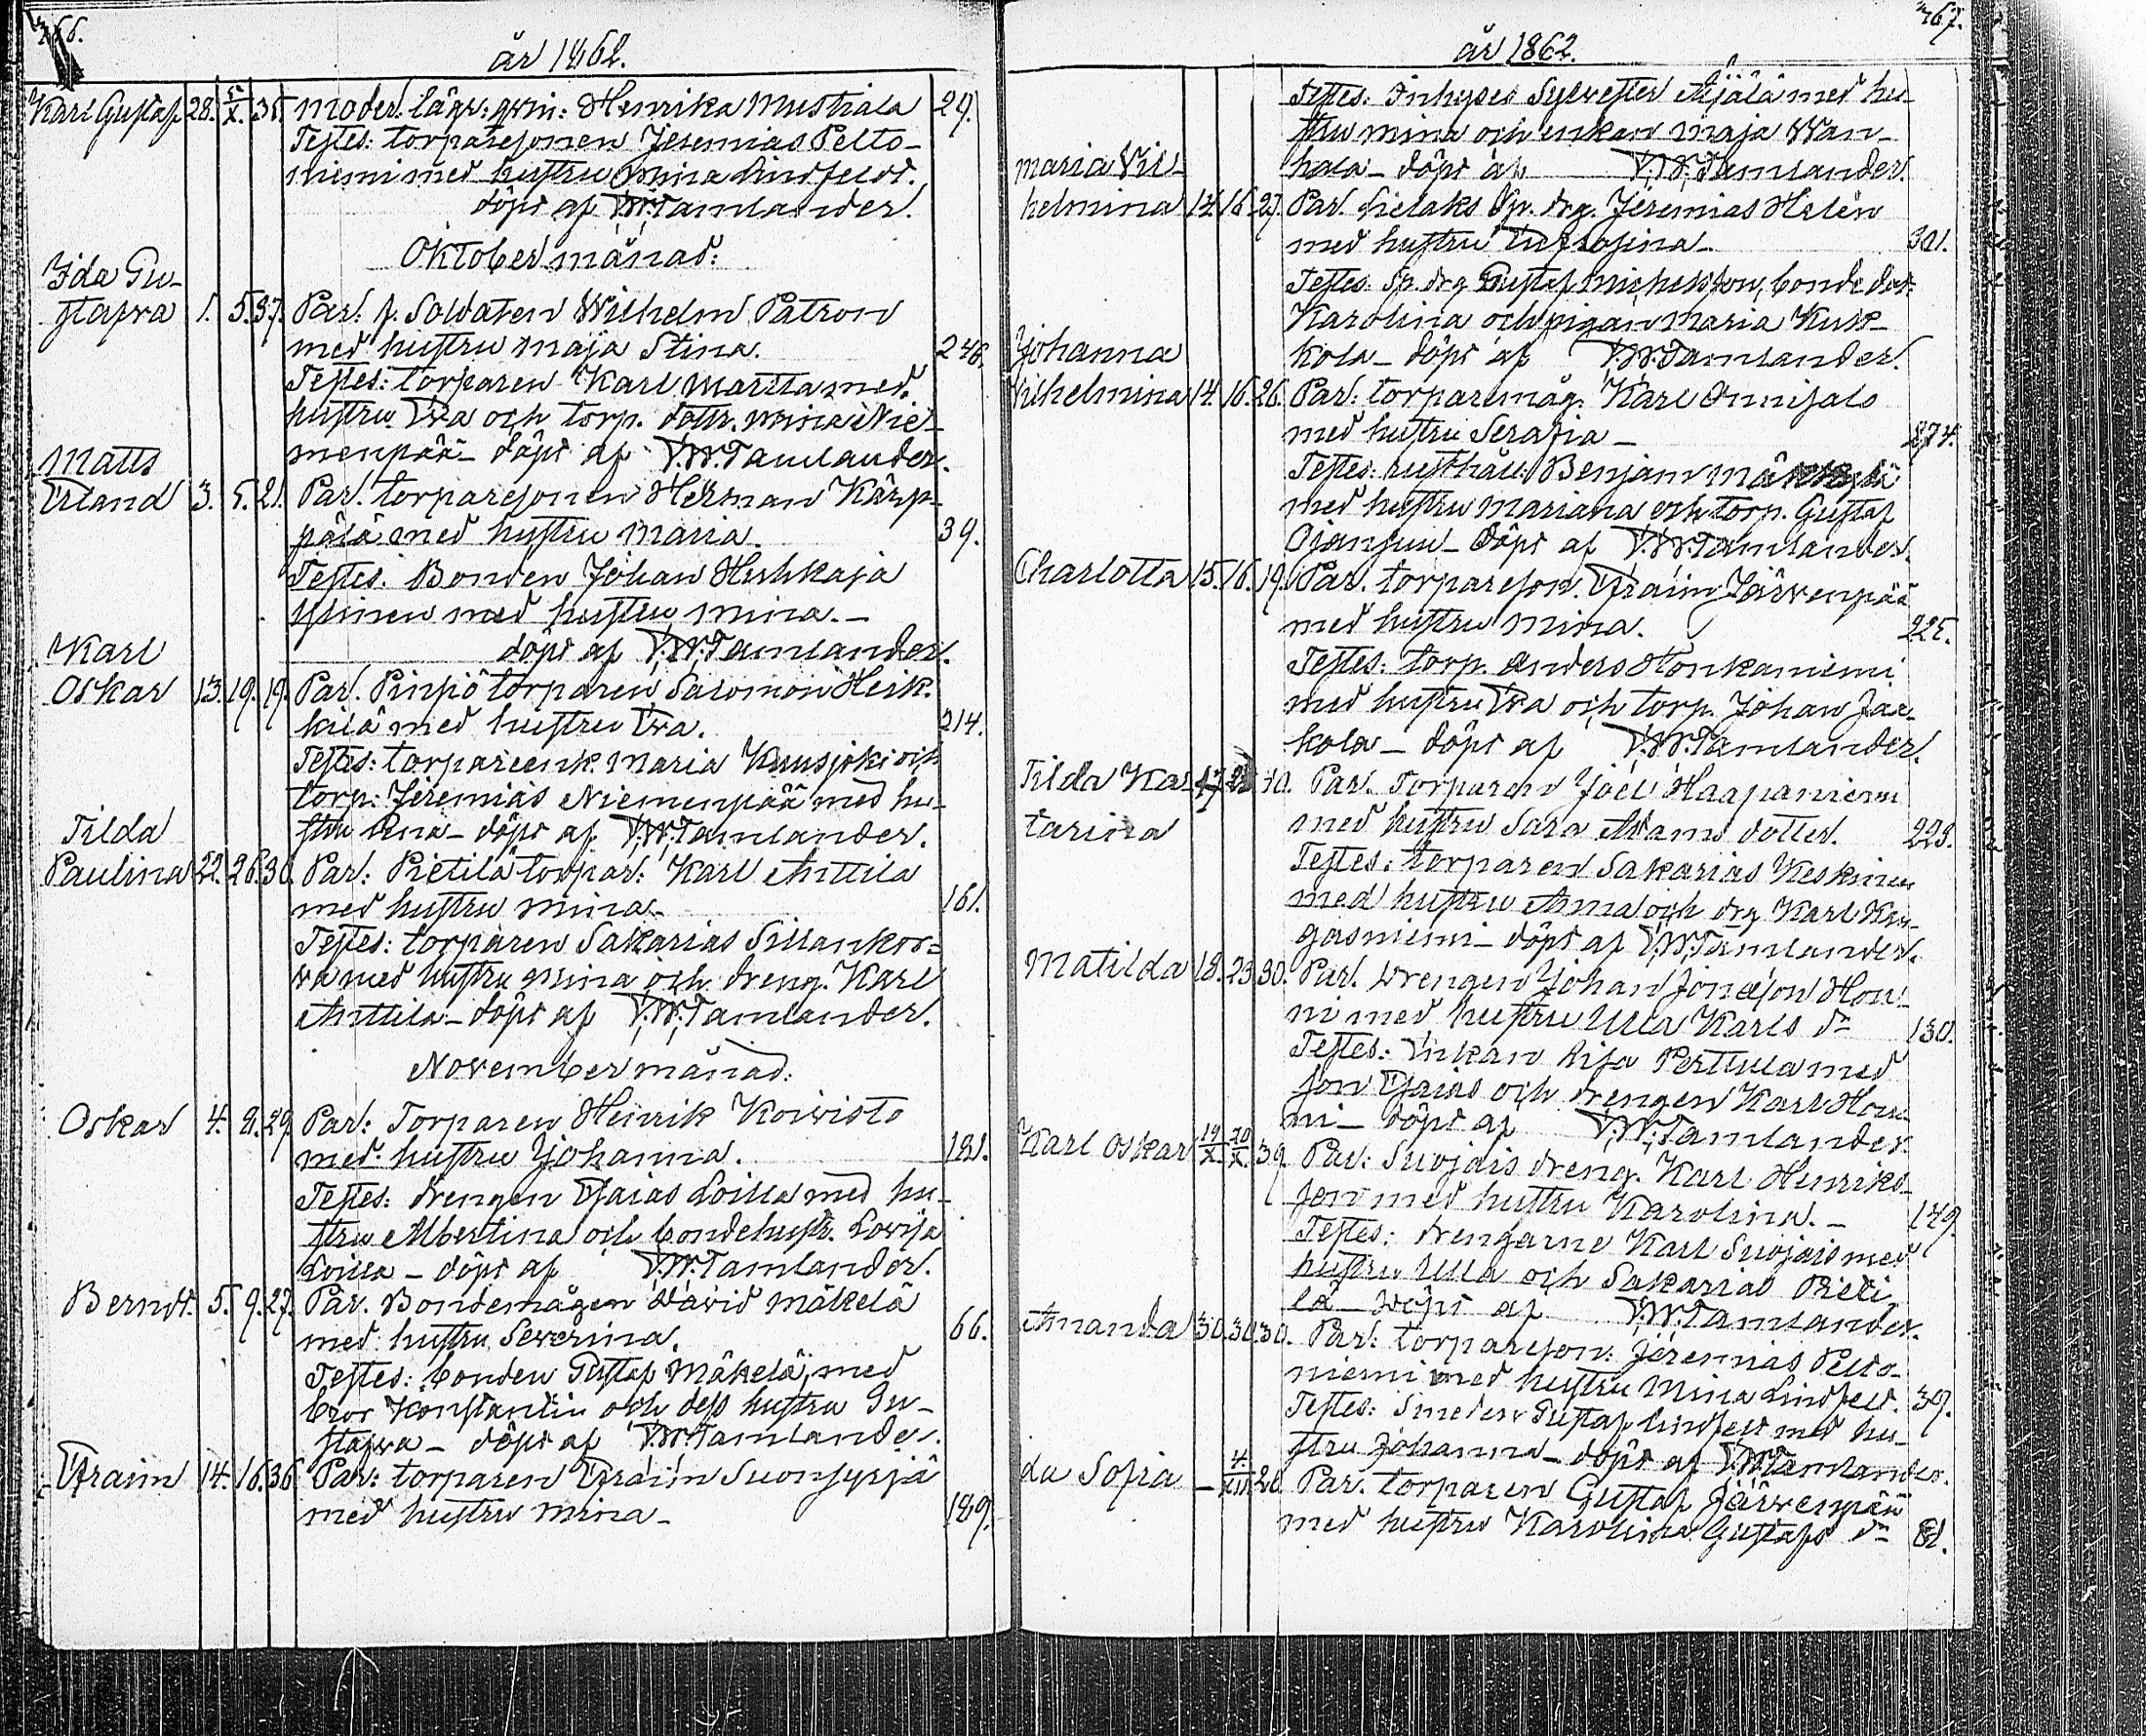 366.
år 1862.
Karl Gustaf 28. 5/X. 35. Moder: lägr: qvin: Henrika Mustiala 29.
Testes: torparesonen Jeremias Pelto-
niemi med hustru Mina Lindfeldt.
döpt af V.W.Tamlander.
Oktober månad:
Ida Gu-
stafva 1. 5. 37. Par: f. Soldaten Wilhelm Patron
med hustru Maja Stina. 246.
Testes: torparen Karl Marttla med
hustru Eva och torp. dottr. Mina Nie-
menpää - döpt af V.W.Tamlander.
Matts
Erland 3. 5. 21. Par. torparesonen Herman Kärp-
pälä med hustru Maria. 39.
Testes. Bonden Johan Huhkaja
med hustru Mina. -
döpt af V.W.Tamlander.
Karl
Oskar 13. 19. 19. Par. Pinpiö torparen Salomon Heik-
kilä med hustru Eva. 214.
Testes: torpareenk. Maria Kuusjoki och
torp: Jeremias Niemenpää med hu-
stru Lena - döpt af V.W.Tamlander.
Tilda
Paulina 22. 26. 30. Par: Pietilä torpar: Karl Anttila
med hustru Mina. 161.
Testes: torparen Sakarias Sillankor-
va med hustru Mina och dreng. Karl
Anttila - döpt af V.W.Tamlander.
November månad:
Oskar 4. 8. 29. Par: Torparen Henrik Koivisto
med hustru Johanna. 181.
Testes: drengen Esaias Loilla med hu-
stru Albertina och bondehustr. Lovisa
Loilla - döpt af V.W.Tamlander.
Berndt. 5. 9. 27. Par. Bondemågen David Mäkelä
med hustru Severina. 66.
Testes: bonden Gustaf Mäkelä, med
bror Konstantin och dess hustru Gu-
stafva - döpt af V.W.Tamlander.
Efraim 14. 16. 36. Par: torparen Efraim Suonsyrjä
med hustru Mina - 189.
367.
år 1862.
Testes: Inhyses Sylvester Äijälä med hu-
stru Mina och enkan Maja Wan-
hala - döpt af V.W.Tamlander.
Maria Vil-
helmina 14. 16. 27. Par. Sp. drg. Jeremias Helén
med hustru Eufrosina - 301.
Testes. Sp. drg Gustaf Michelsson, bonde dot.
Karolina och pigan Maria Kuk-
kola - döpt af V.W.Tamlander.
Johanna
Vilhelmina 14. 16. 26. Par: torparemåg. Karl Onnisalo
med hustru Serafia - 274.
Testes: rusthåll: Benjam Mäkkylä
med hustru Mariana och torp. Gustaf
Ojansuu - döpt af V.W.Tamlander.
Charlotta 15. 16. 19. Par. torpareson. Efraim Järvenpää
med hustru Mina. 225.
Testes: torp. Anders Honkaniemi
med hustru Eva och torp. Johan Jaa-
kola - döpt af V.W.Tamlander.
Tilda Ka-
tarina 17. 23. 40. Par. Torparen Joel Haapaniemi
med hustru Sara Adams dotter. 223.
Testes: torparen Sakarias Keskinen
med hustru Anna och drg Karl Kan-
gasniemi - döpt af V.W.Tamlander.
Matilda 18. 23. 30. Par. Drengen Johan Jonasson Hon-
ni med hustru Ulla Karls dr 130.
Testes: Enkan Lisa Perttula med
son Esaias och drengen Karl Hon-
ni - döpt af V.W.Tamlander.
Karl Oskar 19/X. 20/X. 39. Par: Suojais dreng. Karl Henriks-
son med hustru Karolina. - 149.
Testes: drengarne Karl Suojais med
hustru Ulla och Sakarias Pieti-
lä - döpt af V.W.Tamlander.
Amanda 30. 30. 30. Par: torpareson: Jeremias Pelto-
niemi med hustru Mina Lindfeld. 39.
Testes: Smeden Gustaf Lindfelt med hu-
stru Johanna - döpt af V.W.Tamlander.
da Sofia - 4/XII 28. Par. torparen Gustaf Järvenpää
med hustru Karolina Gustafs dr 82.